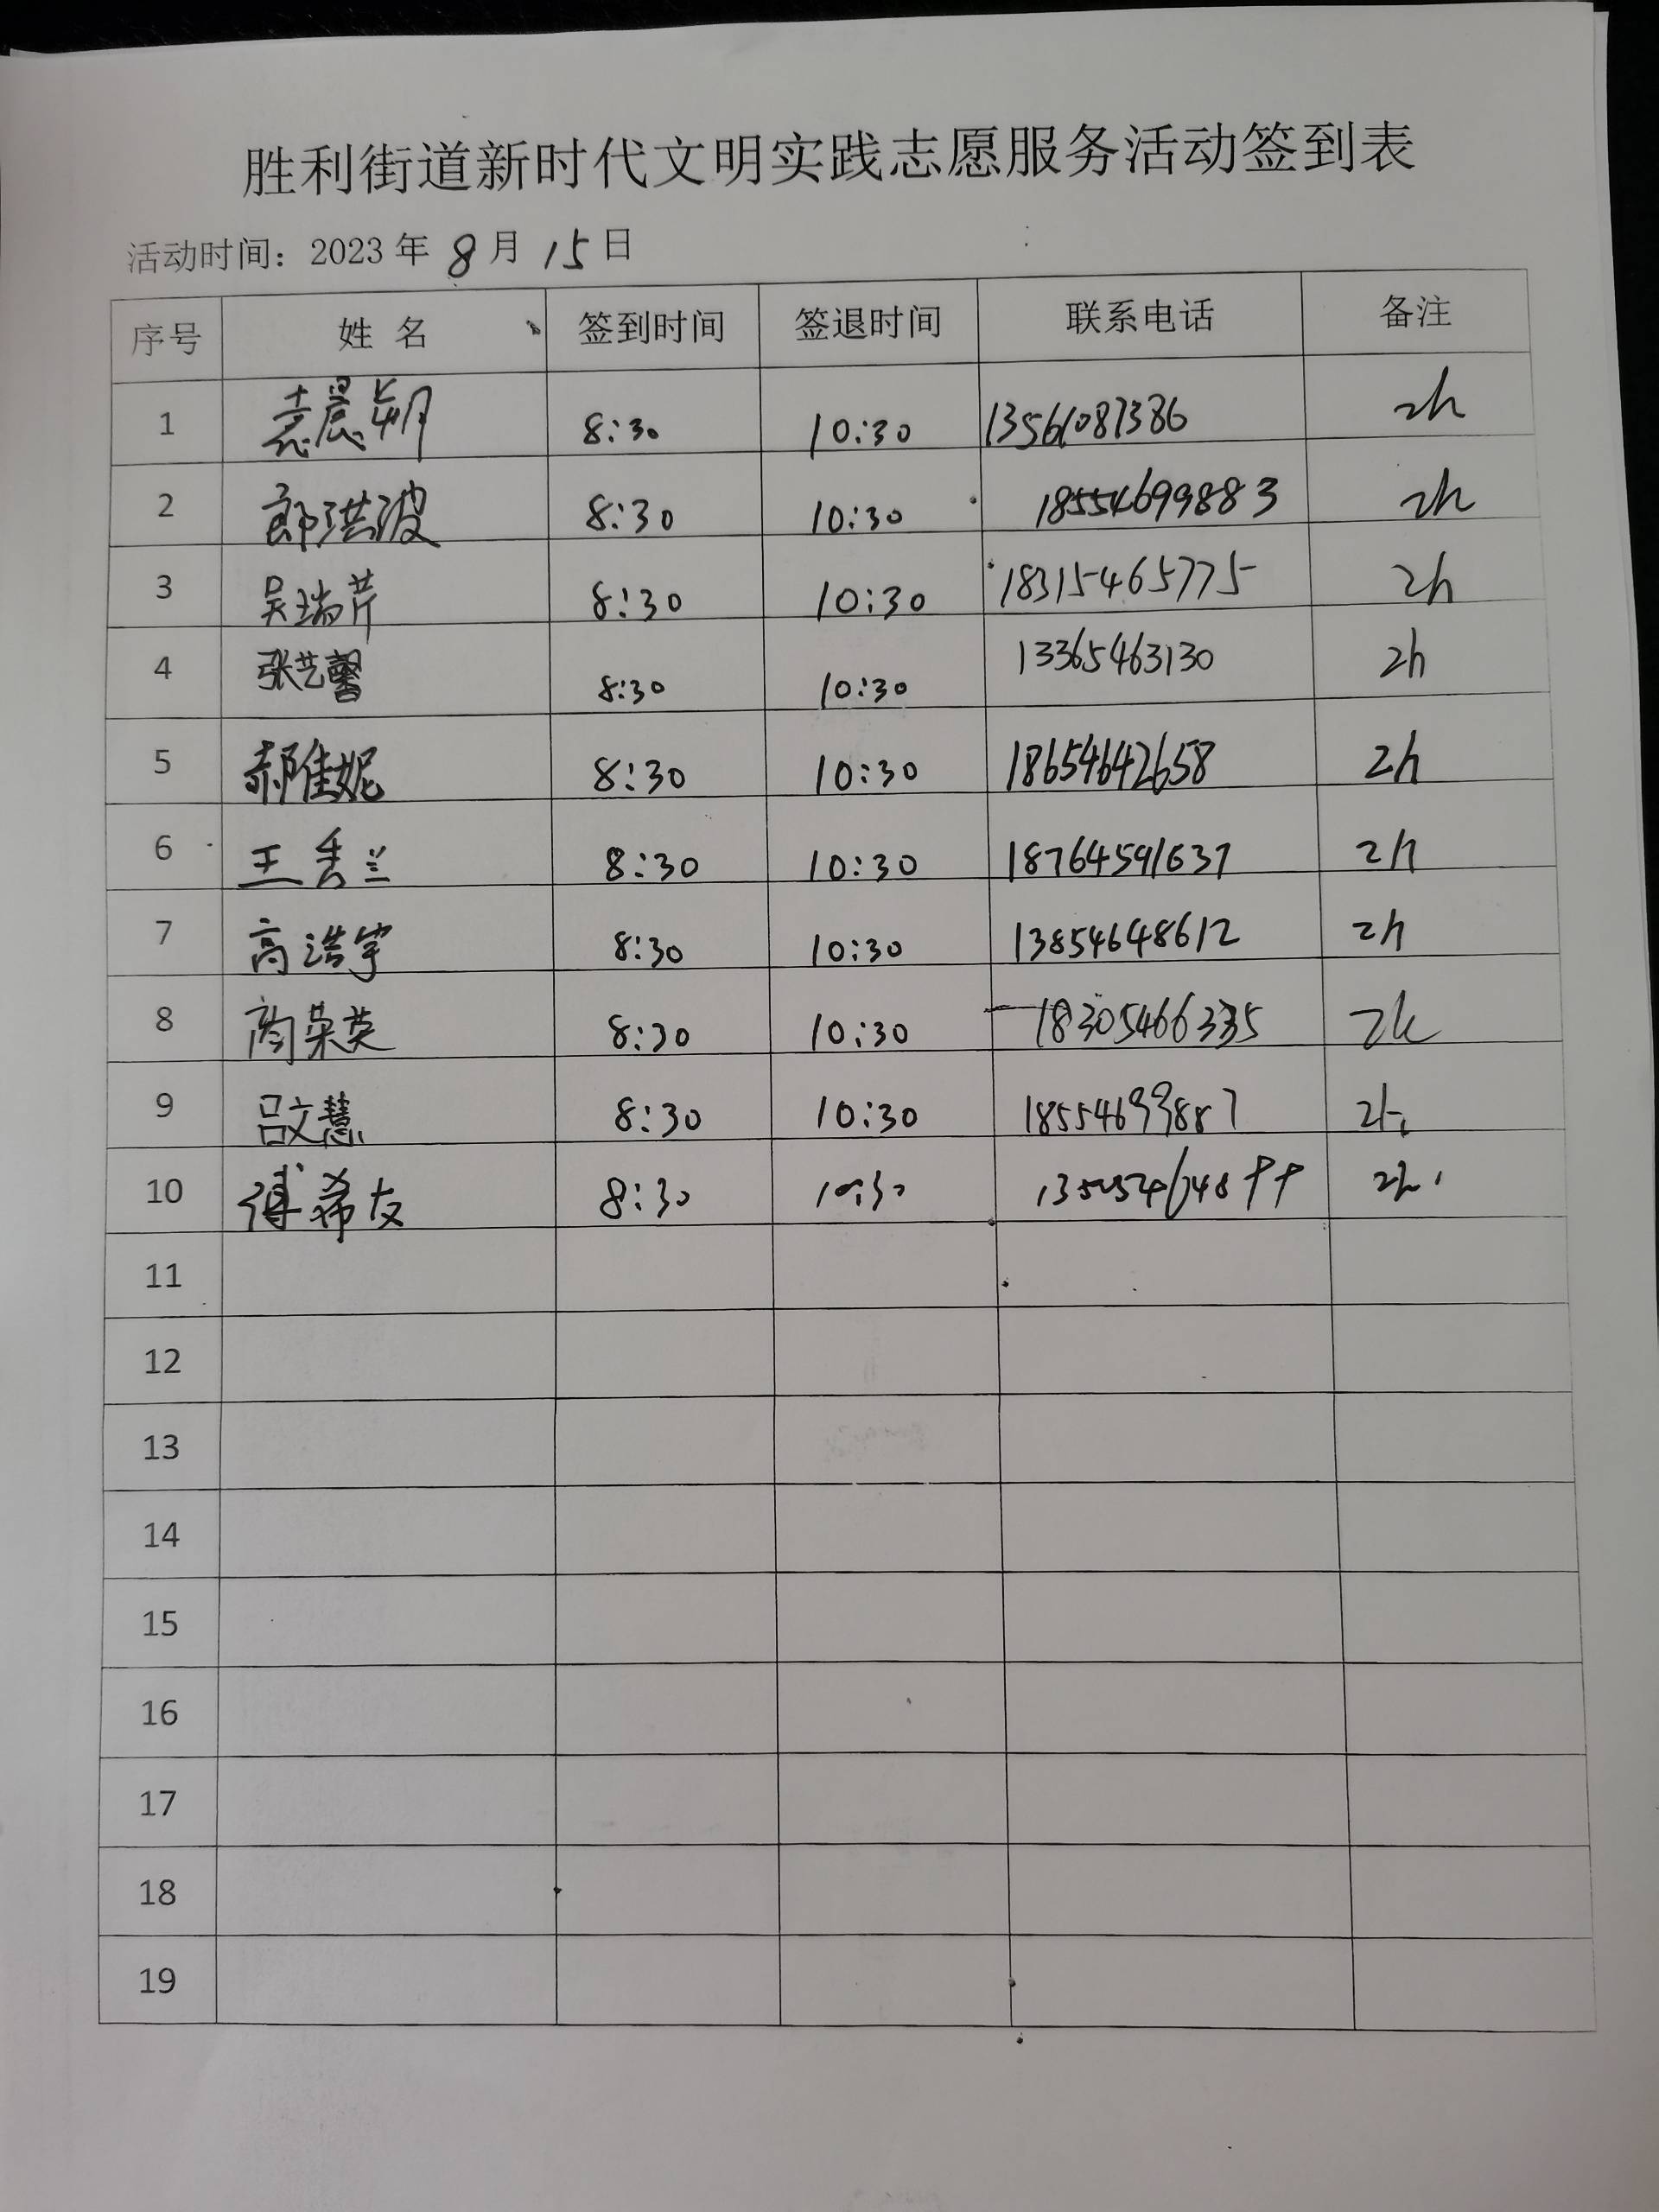 胜利街道新时代文明实践志愿服务活动签到表
活动时间：2023 年 8 月 15 日
序号 姓 名 签到时间 签退时间 联系电话 备注
1 袁晨朔 8:30 10:30 13561087386 2h
2 郎洪波 8:30 10:30 18554699883 2h
3 吴瑞芹 8:30 10:30 18315465775 2h
4 张艺馨 8:30 10:30 13365463130 2h
5 郝佳妮 8:30 10:30 18654642658 2h
6 王秀兰 8:30 10:30 18764591637 2h
7 高浩宇 8:30 10:30 13854648612 2h
8 荣英 8:30 10:30 18305466335 2h
9 吕文慧 8:30 10:30 18554699887 2h
10 傅希友 8:30 10:30 2h
11
12
13
14
15
16
17
18
19